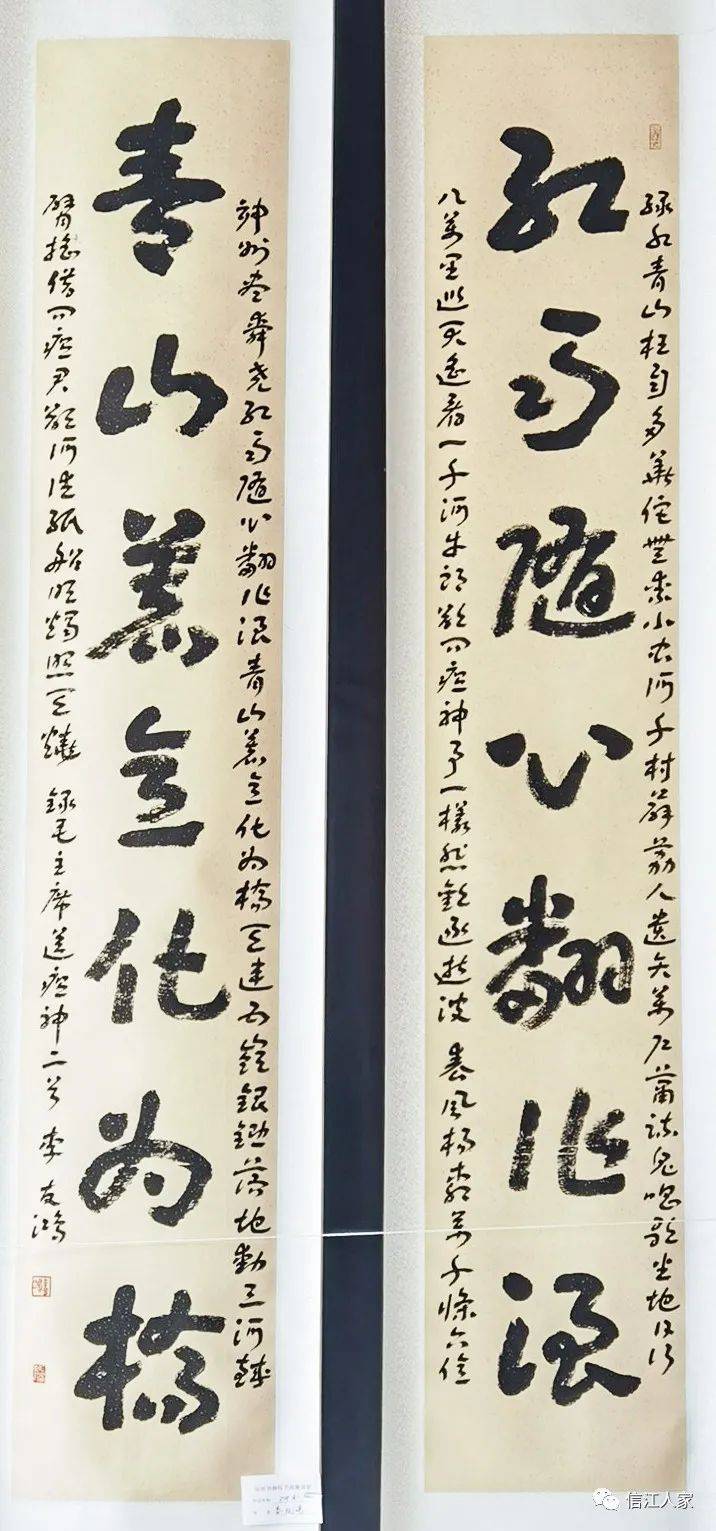 绿水青山枉自多華佗無奈小虫何千村薜荔人遗矢萬户蕭疏鬼唱歌坐地日行
红雨隨心翻作浪
八萬里巡天遥看一千河牛郎欲问瘟神事一樣悲歡逐逝波 春風楊柳萬千條六億
神州盡舜堯红雨隨心翻作浪青山着意化为橋天連五嶺銀鋤落地動三河鐵
青山着意化为橋
臂摇借问瘟君欲何往纸船明燭照天燒 録毛主席送瘟神二首 李友鴻
信江人家